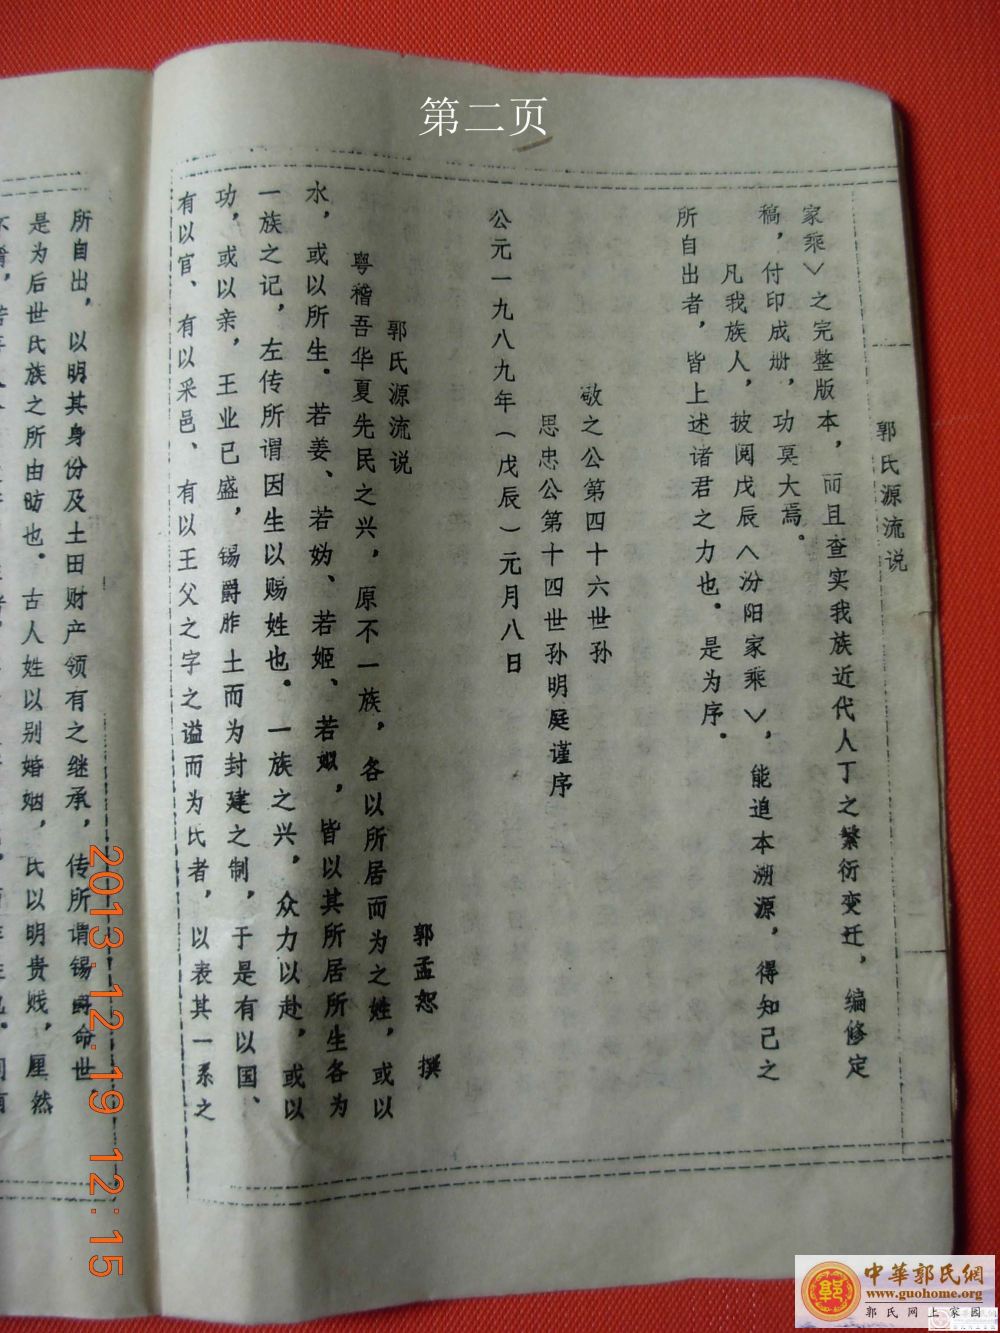 第二页
郭氏源流说
家乘﹀之完整版本，而且查实我族近代人丁之繁衍变迁，编修定
稿，付印成册，功莫大焉。
凡我族人，披阅戊辰︿汾阳家乘﹀，能追本溯源，得知己之
所自出者，皆上述诸君之力也。是为序。
敬之公第四十六世孙
思忠公第十四世孙明庭谨序
公元一九八九年（戊辰）元月八日
郭氏源流说
郭孟恕 撰
粤稽吾华夏先民之兴，原不一族，各以所居而为之姓，或以
水，或以所生．若姜、若妫、若姬、若姒，皆以其所居所生各为
一族之记，左传所谓因生以赐姓也．一族之兴，众力以赴，或以
功，或以亲，王业已盛，锡爵胙土而为封建之制，于是有以国、
有以官、有以采邑、有以王父之字之谥而为氏者，以表其一系之
所自出，以明其身份及土田财产领有之继承，传所谓锡爵命世，
是为后世氏族之所由昉也．古人姓以别婚姻，氏以明贵贱，厘然
2013.12.19 12:15
中華郭氏網
www.guohome.org
郭氏网上家园